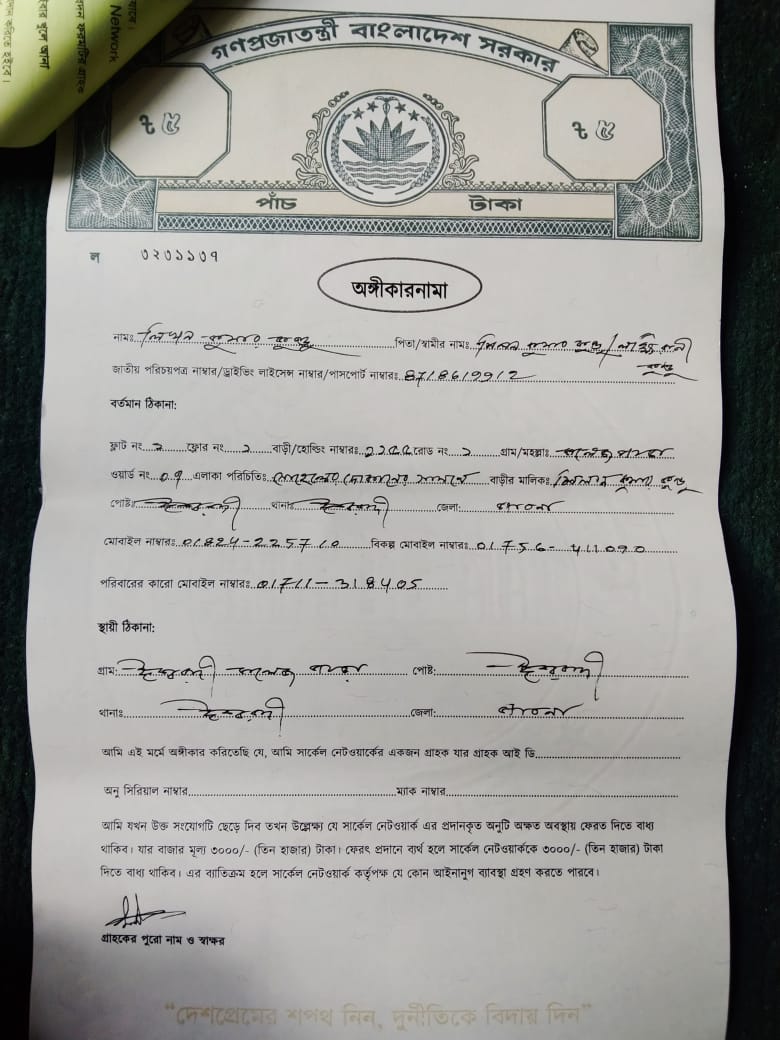 Network
গণপ্রজাতন্ত্রী বাংলাদেশ সরকার
৳ ৫
৳ ৫
পাঁচ টাকা
ল ৩২৩১১৩৭
অঙ্গীকারনামা
নামঃ লিখন কুমার কুন্ডু পিতা/স্বামীর নামঃ কুমার কুন্ডু/
জাতীয় পরিচয়পত্র নাম্বার/ড্রাইভিং লাইসেন্স নাম্বার/পাসপোর্ট নাম্বারঃ 8718619912 কুন্ডু
বর্তমান ঠিকানা:
ফ্লাট নং ফ্লোর নং বাড়ী/হোল্ডিং নাম্বারঃ রোড নং গ্রাম/মহল্লাঃ কলেজ পাড়া
ওয়ার্ড নং ০৭ এলাকা পরিচিতিঃ দোকানের সামনে বাড়ীর মালিকঃ কুমার কুন্ডু
পোষ্টঃ ঈশ্বরদী থানাঃ ঈশ্বরদী জেলা: পাবনা
মোবাইল নাম্বারঃ 01824-225710 বিকল্প মোবাইল নাম্বারঃ 01756-411090
পরিবারের কারো মোবাইল নাম্বারঃ 01711-318405
স্থায়ী ঠিকানা:
গ্রাম: ঈশ্বরদী কলেজ পাড়া পোষ্ট: ঈশ্বরদী
থানাঃ ঈশ্বরদী জেলা: পাবনা
আমি এই মর্মে অঙ্গীকার করিতেছি যে, আমি সার্কেল নেটওয়ার্কের একজন গ্রাহক যার গ্রাহক আই ডি
অনু সিরিয়াল নাম্বার ম্যাক নাম্বার
আমি যখন উক্ত সংযোগটি ছেড়ে দিব তখন উল্লেক্ষ্য যে সার্কেল নেটওয়ার্ক এর প্রদানকৃত অনুটি অক্ষত অবস্থায় ফেরত দিতে বাধ্য
থাকিব। যার বাজার মূল্য ৩০০০/- (তিন হাজার) টাকা। ফেরৎ প্রদানে ব্যর্থ হলে সার্কেল নেটওয়ার্ককে ৩০০০/- (তিন হাজার) টাকা
দিতে বাধ্য থাকিব। এর ব্যাতিক্রম হলে সার্কেল নেটওয়ার্ক কর্তৃপক্ষ যে কোন আইনানুগ ব্যাবস্থা গ্রহণ করতে পারবে।
গ্রাহকের পুরো নাম ও স্বাক্ষর
“দেশপ্রেমের শপথ নিন, দুর্নীতিকে বিদায় দিন”